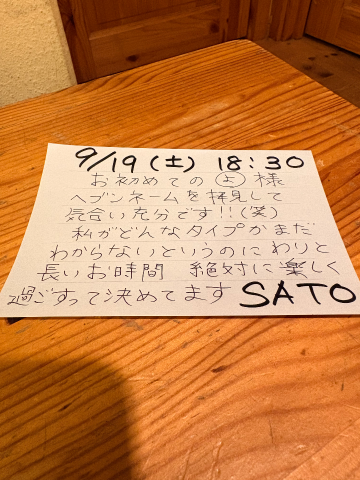 9/19(土) 18:30
お初めての よ 様
ヘブンネームを拝見して
気合い充分です!!(笑)
私がどんなタイプかまだ
わからないというのにわりと
長いお時間 絶対に楽しく
過ごすって決めてます SATO